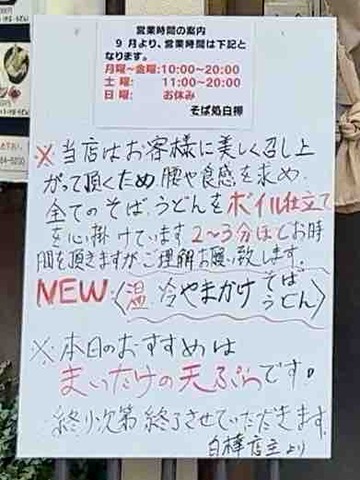 営業時間の案内
9月より、営業時間は下記と
なります。
月曜～金曜:10:00～20:00
土　曜:　11:00～20:00
日　曜:　お休み
そば処白樺
※当店はお客様に美しく召し上
がって頂くため、腰や食感を求め、
全てのそば、うどんをボイル仕立て
を心掛けています 2～3分ほどお時
間を頂きますがご理解お願い致します。
NEW.〈温冷やまかけそば うどん〉
※本日のおすすめは
まいたけの天ぷらです。
終り次第終了させていただきます。
白樺店主より